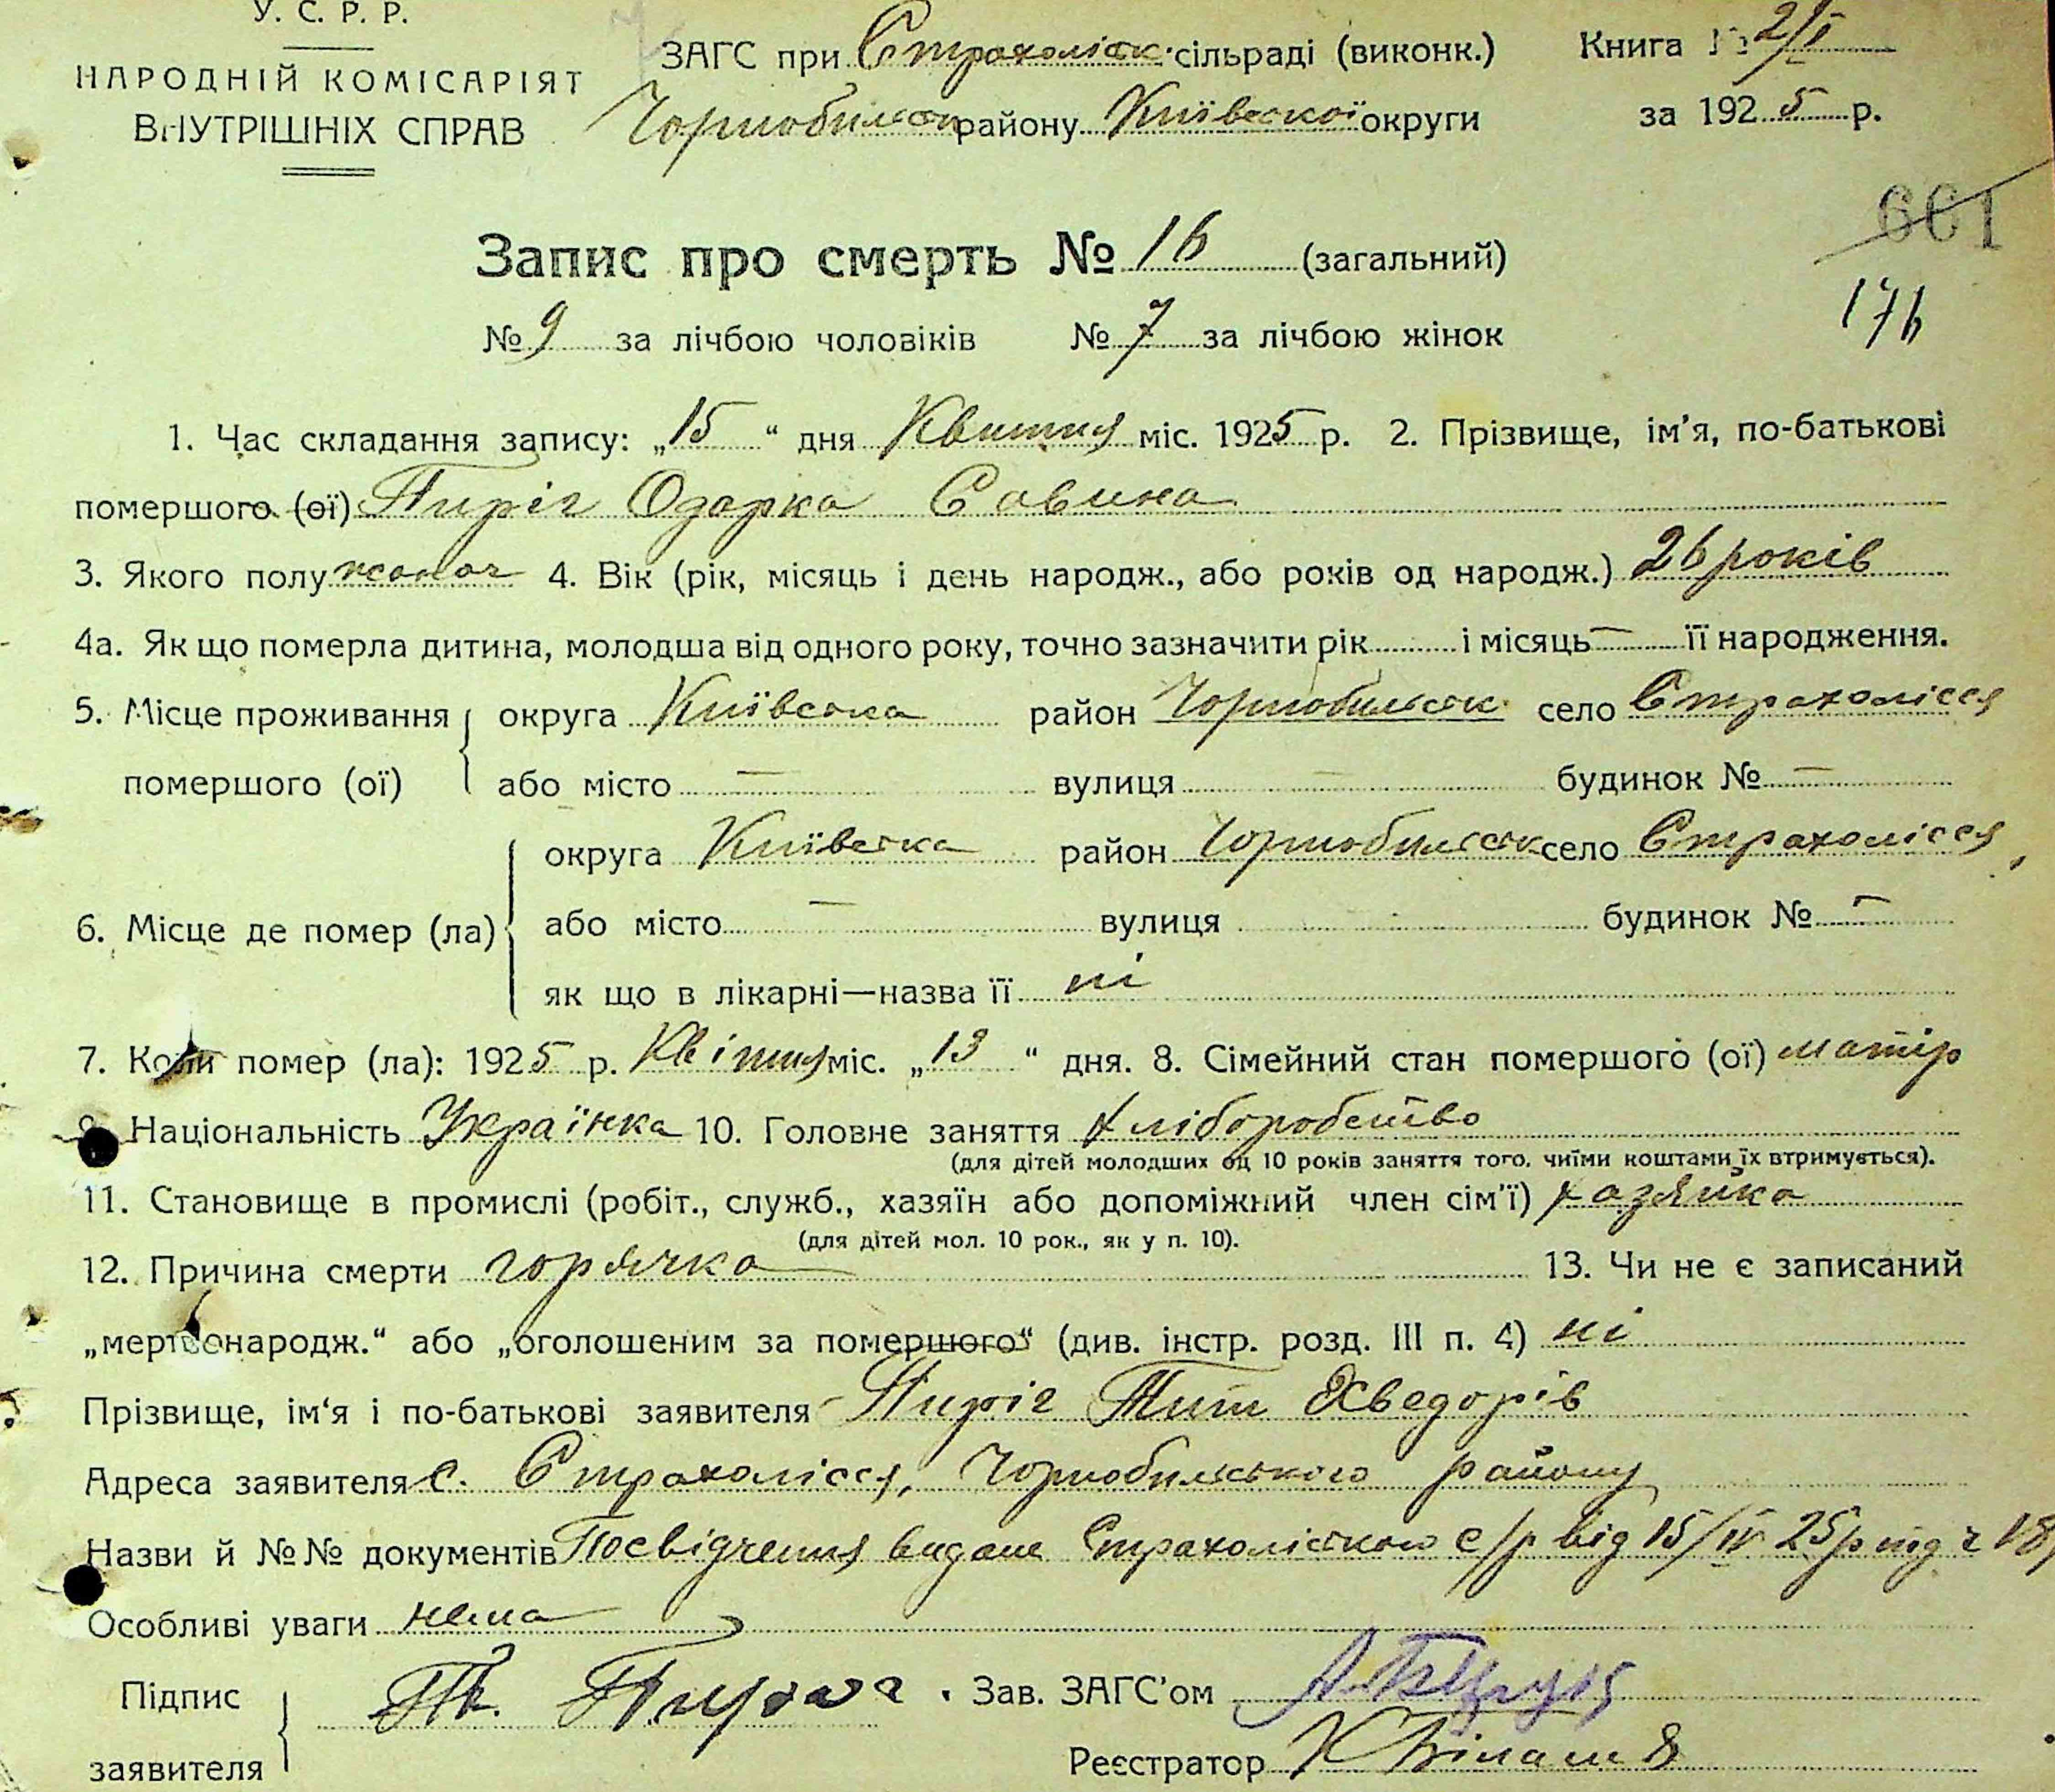 У. С. Р. Р.
НАРОДНІЙ КОМІСАРІЯТ
ВНУТРІШНІХ СПРАВ
ЗАГС при Страхоліськ. сільраді (виконк.)
Чорнобильськ району Київської округи
Книга № 2/I
за 1925 р.
661
176
Запис про смерть № 16 (загальний)
№ 9 за лічбою чоловіків № 7 за лічбою жінок
1. Час складання запису: „15“ дня Квитня міс. 1925 р. 2. Прізвище, ім’я, по-батькові
помершого (ої) Пиріг Одарка Савина
3. Якого полу 4. Вік (рік, місяць і день народж., або років од народж.) 26 років
4а. Як що померла дитина, молодша від одного року, точно зазначити рік і місяць — її народження.
5. Місце проживання округа Київська район Чорнобильськ. село Страхолісся
помершого (ої) або місто — вулиця — будинок № —
округа Київська район Чорнобильськ село Страхолісся
6. Місце де помер (ла) або місто — вулиця будинок № —
як що в лікарні—назва її ні
7. Коли помер (ла): 1925 р. Квітня міс. „13“ дня. 8. Сімейний стан помершого (ої) матір
9. Національність Українка 10. Головне заняття хліборобство
(для дітей молодших од 10 років заняття того, чиїми коштами їх втримується).
11. Становище в промислі (робіт., служб., хазяїн або допоміжний член сім’ї) хазяйка
(для дітей мол. 10 рок., як у п. 10).
12. Причина смерти горячка 13. Чи не є записаний
„мертвонародж.“ або „оголошеним за помершого“ (див. інстр. розд. III п. 4) ні
Прізвище, ім‘я і по-батькові заявителя Пиріг Тит Хведорів
Адреса заявителя с. Страхолісся, Чорнобильського району
Назви й №№ документів Посвідчення видане Страхоліською с/р від 15/IV 25р під ч 18
Особливі уваги нема
Підпис
заявителя
Т. Пирог
Зав. ЗАГС’ом
Реєстратор К